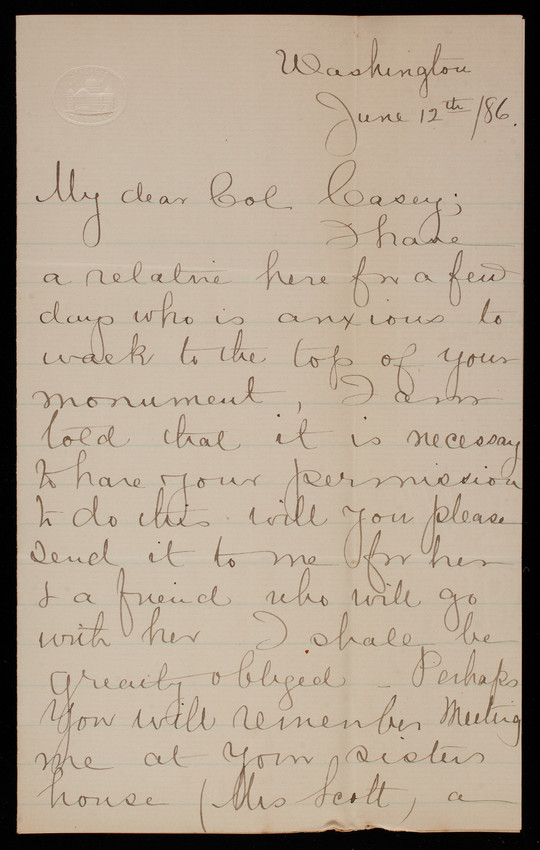 Washington
June 12th/86.
My dear Col Casey;
I have
a relative here for a few
days who is anxious to
walk to the top of your
monument, I am
told that it is necessary
to have your permission
to do this. will you please
send it to me for her
& a friend who will go
with her I shall be
greatly obliged - Perhaps
you will remember meeting
me at your sisters
house (Mrs Scott, a